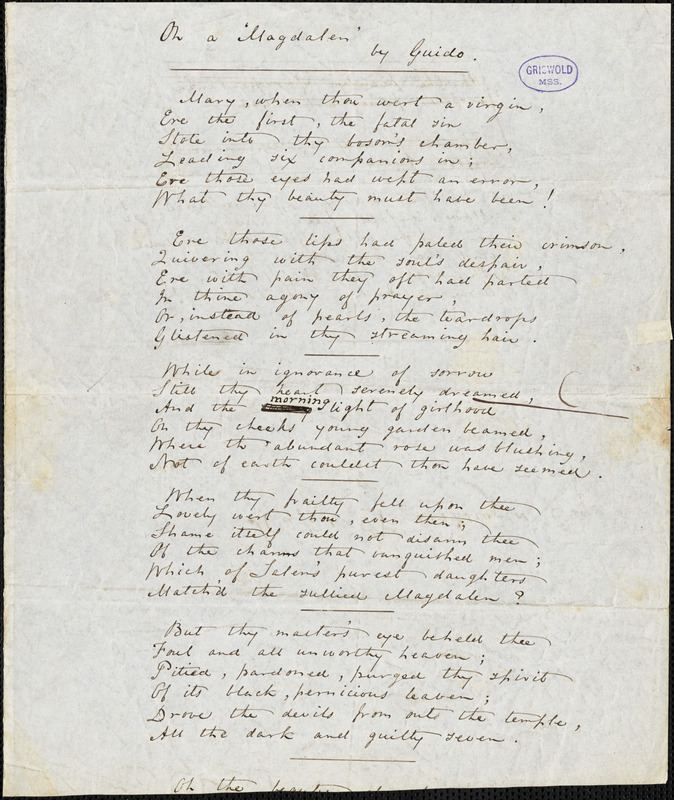 On a 'Magdalen'
by Guido.
GRISWOLD
MSS.
Mary, when thou wert a virgin,
Ere the first, the fatal sin
Stole into thy bosom's chamber,
Leading six companions in;
Ere those eyes had wept an error,
What thy beauty must have been!
Ere those lips had paled their crimson,
Quivering with the soul's despair,
Ere with pain they oft had parted
In thine agony of prayer,
Or, instead of pearls, the teardrops
Glistened in thy streaming hair.
While in ignorance of sorrow
Still thy heart serenely dreamed,
And the morning light of girlhood
On thy cheeks young garden beamed,
Where th' abundant rose was blushing,
Not of earth couldst thou have seemed.
When thy frailty fell upon thee
Lovely wert thou, even then;
Shame itself could not disarm thee
Of the charms that vanquished men;
Which of Salem's purest daughters
Match'd the sullied Magdalen?
But thy master's eye beheld thee
Foul and all unworthy heaven;
Pitied, pardoned, purged thy spirit
Of its black, pernicious leaven;
Drove the devils from out the temple,
All the dark and guilty seven.
Oh the beauty